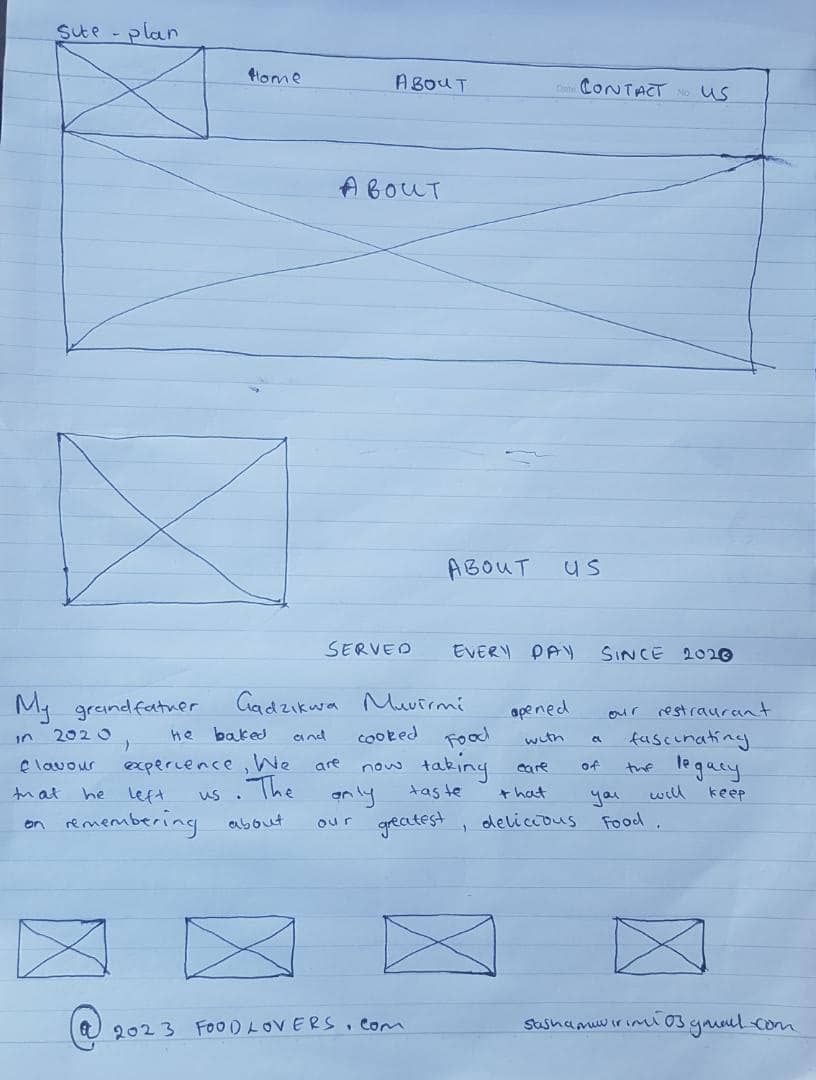 site - plan
Home ABOUT CONTACT US
ABOUT
ABOUT US
SERVED EVERY DAY SINCE 2020
My grandfather Gadzikwa Muvirmi opened our restraurant
in 2020, he baked and cooked Food with a fascinating
flavour experience, We are now taking care of the legacy
that he left us. The only taste that you will keep
on remembering about our greatest, delicious Food.
@ 2023 FOODLOVERS.com sashamuvirimi03gmail.com